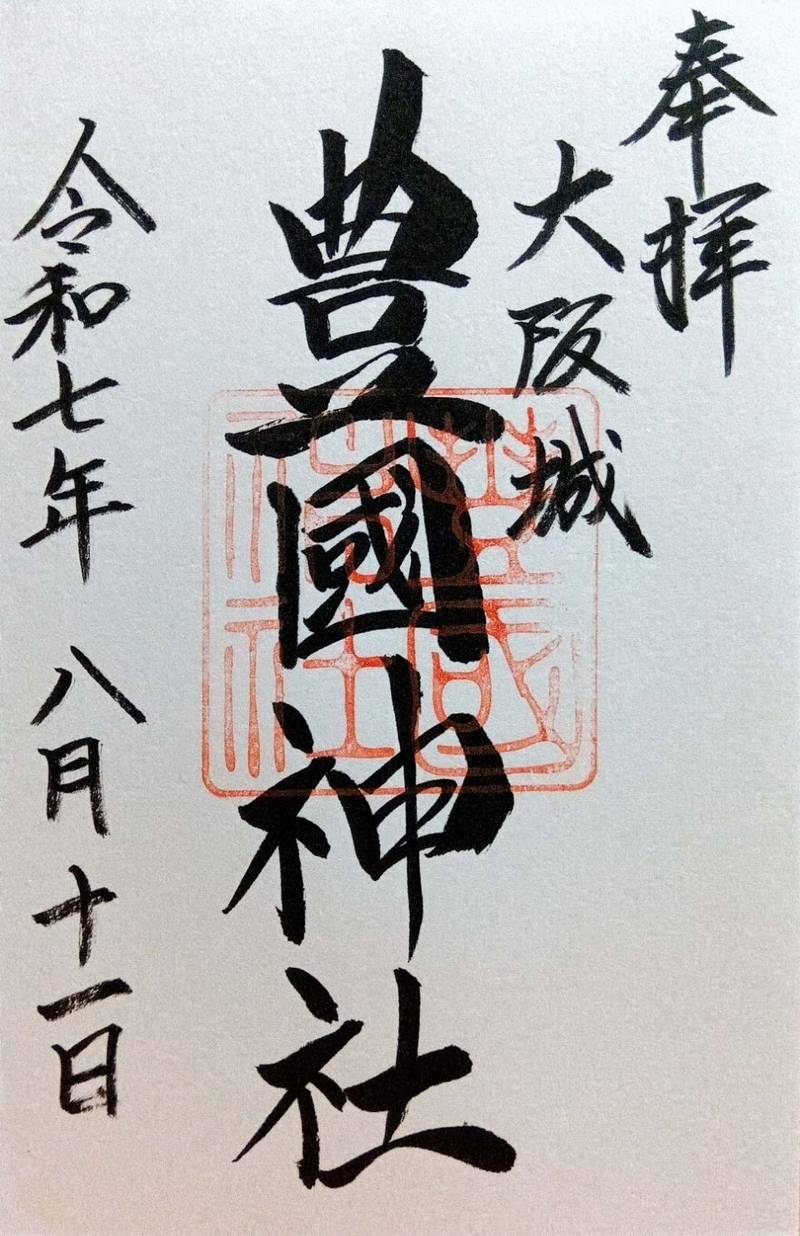 奉拝
大阪城
豊國神社
令和七年 八月十一日
豊國
神社